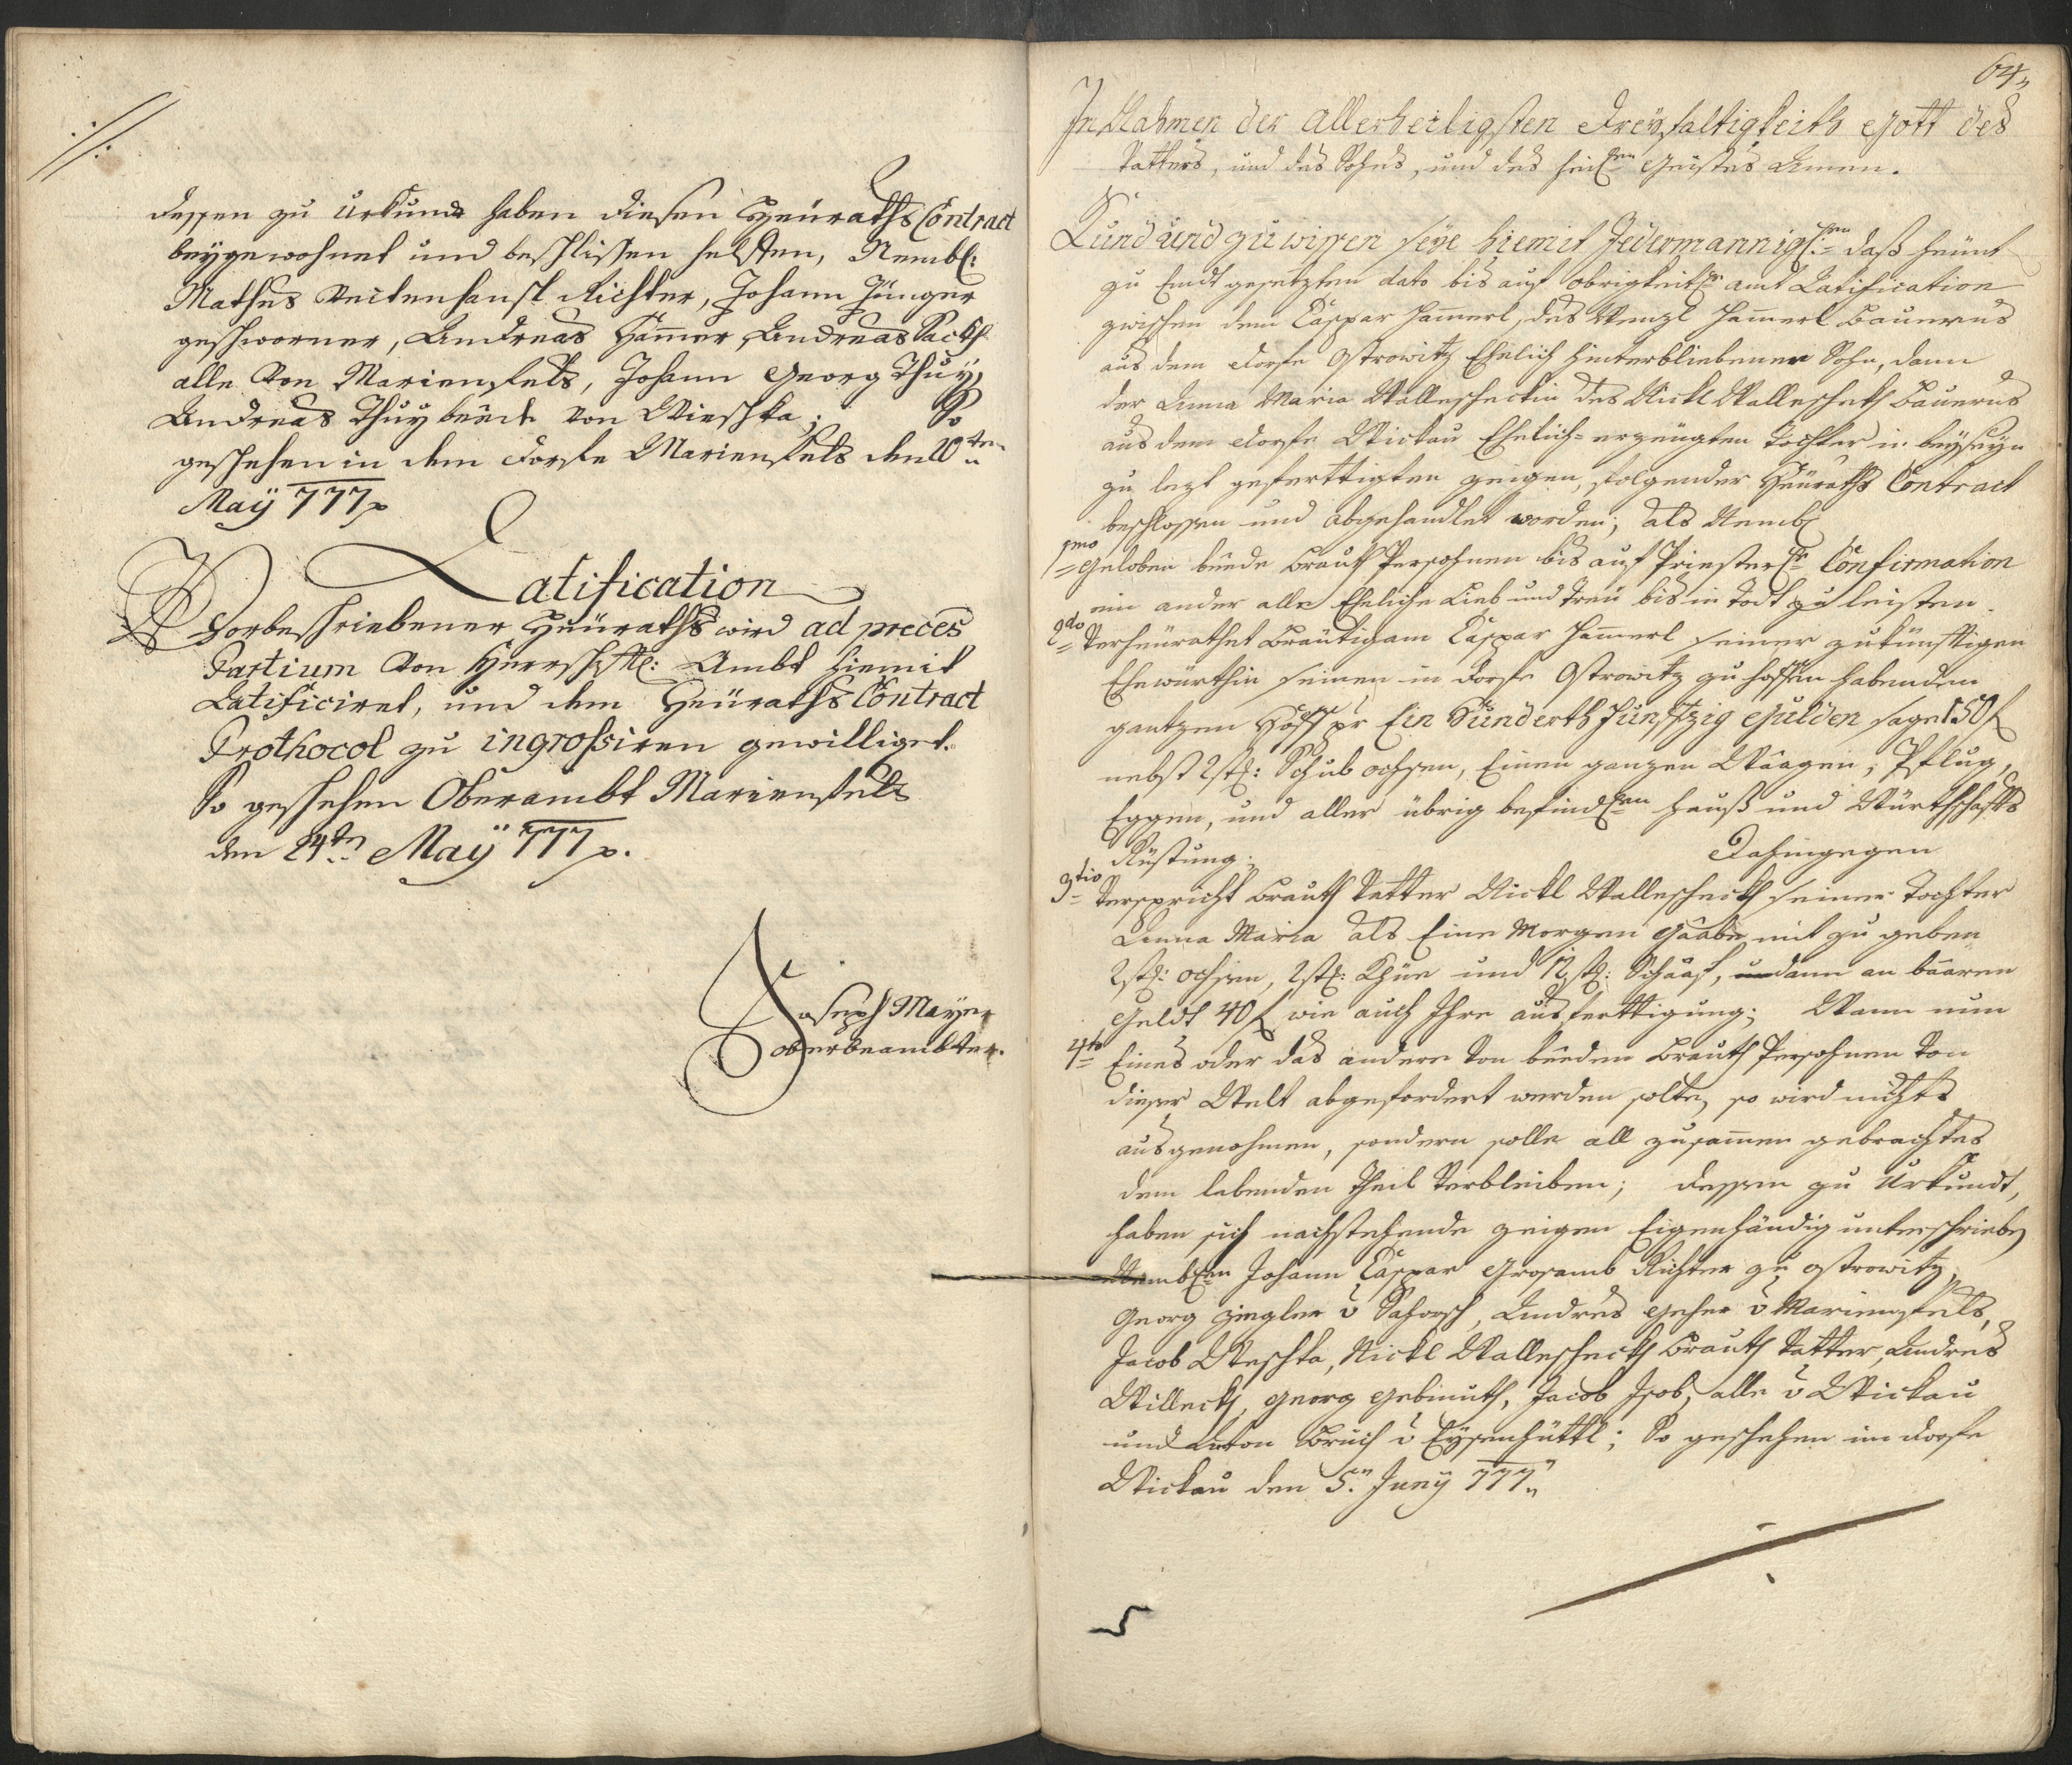 dessen zu Urkund haben diesen Heüraths Contract
beygewohnet und beschlissen helffen, Nembl:
Mathes Veitenhansl Richter, Johann Jünger
geschworner, Andreas Hämmer, Andreas Sackh
alle von Marienfels, Johann Georg Thuy,
Andreas Thuy beede von Wieschka; So
geschehen in dem Dorfe Marienfels den 20ten
Maÿ 777
Ratification
Vorbeschriebener Heüraths wird ad preces
Partium von Herrschftl: Ambt hiemit
Ratificiret, und dem Heüraths Contract
Prothocol zu ingrossiren gewilliget.
So geschehen Oberambt Marienfels
den 24ten Maÿ 777.
Joseph Mayer
oberbeambter.
64
In Nahmen der Allerheiligsten Dreyfaltigkeith Gott des
Vatters, und des Sohns, und des heilen Geistes Amen.
Kund und zu wissen seye hiemit Jedermannigl:en daß heünt
zu Endt gesetzten dato bis auf obrigkeitlr amt Ratification
zwischen dem Caspar Hamerl, des Wenzl Hamerl Bauerns
aus dem Dorfe Ostrowitz Ehelich hinterbliebenen Sohn, dann
der Anna Maria Wallescheckin des Nickl Wallescheckh Bauerns
aus dem Dorfe Wickau Ehelich-erzeügten Tochter in beyseyn
zu lezt gefertigten zeügen, folgender Heüraths Contract
beschlossen und abgehandlet worden; als Nembl
1mo Geloben beede Brauth Persohnen bis auf Priesterlr Confirmation
ein ander alle Eheliche Lieb und Treü bis in Todt zu leisten.
2do Verheürathet Bräutigam Caspar Hamerl seiner zukünfftigen
Ehewürthin seinen in Dorfe Ostrowitz zu hoffen habenden
gantzen Hoff pr Ein Hunderth Funfftzig Gulden sage 150 f
nebst 2 stk: Schub ochsen, Einen ganzen Waagen, Pflug,
Eggen, und aller übrig befindlen Hauß und Würthschaffts
Rüstung; Dahingegen
3tio Verspricht Brauth Vatter Nickl Wallescheckh seiner Tochter
Anna Maria als Eine Morgen Gaabe mit zu geben
2 stk: ochsen, 2 stk: Khüe und 12 stk: Schaaf, dann an baaren
Geldt 40 f wie auch Ihre ausferttigung; Wann nun
4to Eines oder das andere von beeden Brauth Persohnen von
dieser Welt abgefordert werden solte, so wird nichts
ausgenohmen, sondern solle all zusamen gebrachtes
dem lebenden Theil Verbleiben; Dessen zu Urkundt,
haben sich nachstehende zeigen Eigenhändig unterschrieben
Nemblen Johann Caspar Grosamb Richter zu Ostrowitz,
Georg Ziegler v Sahorsch, Andres Geher v Marienfels,
Jacob Weschka, Nickl Wallescheckh Brauth Vatter, Andres
Willeckh, Georg Gebmuth, Jacob Jsob, alle v Wickau
und Anton Bruch v Eysenhüttl; So geschehen im Dorfe
Wickau den 5n Juny 777